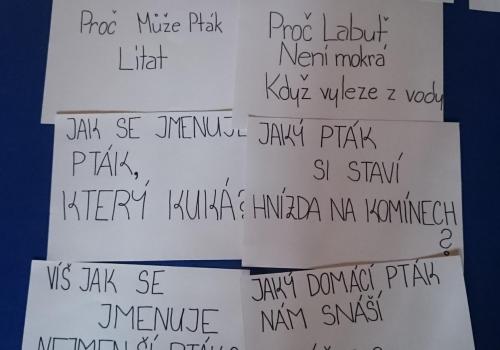 Proč Může Pták
Lítat
Proč Labuť
Není mokrá
Když vyleze z vody
JAK SE JMENUJE
PTÁK,
KTERÝ KUKÁ?
JAKÝ PTÁK
SI STAVÍ
HNÍZDA NA KOMÍNECH
?
VÍŠ JAK SE
JMENUJE
NEJMENŠÍ PTÁK?
JAKÝ DOMÁCÍ PTÁK
NÁM SNÁŠÍ